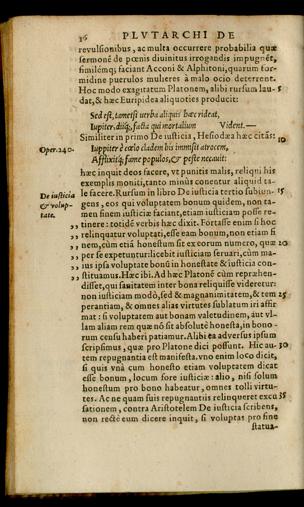 36 PLVTARCHI DE
reuulsionibus, ac multa occurrere probabilia quæ
sermonē de pœnis diuinitus irrogandis impugnēt,
similémq; faciant Acconi & Alphitoni, quarum for-
midine puerulos mulieres à malo ocio deterrent.
Hoc modo exagitatum Platonem, alibi rursum lau- 5
dat, & hæc Euripidea aliquoties producit:
Sed est, tametsi uerba aliquis hæc rideat,
Iupiter, diiq́;, facta qui mortalium Vident.—
Similiter in primo De iusticia, Hesiodæa hæc citās: 10
Oper. 240. Iuppiter è cœlo cladem bis immisit atrocem,
Afflixitq́; fame populos, & peste necauit:
hæc inquit deos facere, vt punitis malis, reliqui his
exemplis moniti, tanto minùs conentur aliquid ta-
De iusticia & volup- tate. le facere. Rursum in libro De iusticia tertio subiun- 15
gens, eos qui voluptatem bonum quidem, non ta-
men finem iusticiæ faciant, etiam iusticiam posse re-
tinere: totidē verbis hæc dixit. Fortasse enim si hoc
„ relinquatur voluptati, esse eam bonum, non etiam si
„ nem, cùm etiā honestum sit ex eorum numero, quæ 20
„ per se expetuntur: licebit iusticiam seruari, cùm ma-
„ ius ipsa voluptate bonū in honestate & iusticia con-
„ stituamus. Hæc ibi. Ad hæc Platonē cùm repræhen-
disset, qui sanitatem inter bona reliquisse videretur:
non iusticiam modò, sed & magnanimitatem, & tem 25
perantiam, & omnes alias virtutes sublatum iri affir
mat: si voluptatem aut bonam valetudinem, aut vl-
lam aliam rem quæ nō sit absolutè honesta, in bono-
rum censu haberi patiamur. Alibi ea aduersus ipsum
scripsimus, quæ pro Platone dici possunt. Hic au- 30
tem repugnantia est manifesta. vno enim loco dicit,
si quis vnà cum honesto etiam voluptatem dicat
esse bonum, locum fore iusticiæ: alio, nisi solum
honestum pro bono habeatur, omnes tolli virtu-
tes. Ac ne quam suis repugnantiis relinqueret excu 35
sationem, contra Aristotelem De iusticia scribens,
non rectè eum dicere inquit, si voluptas pro fine
statua-